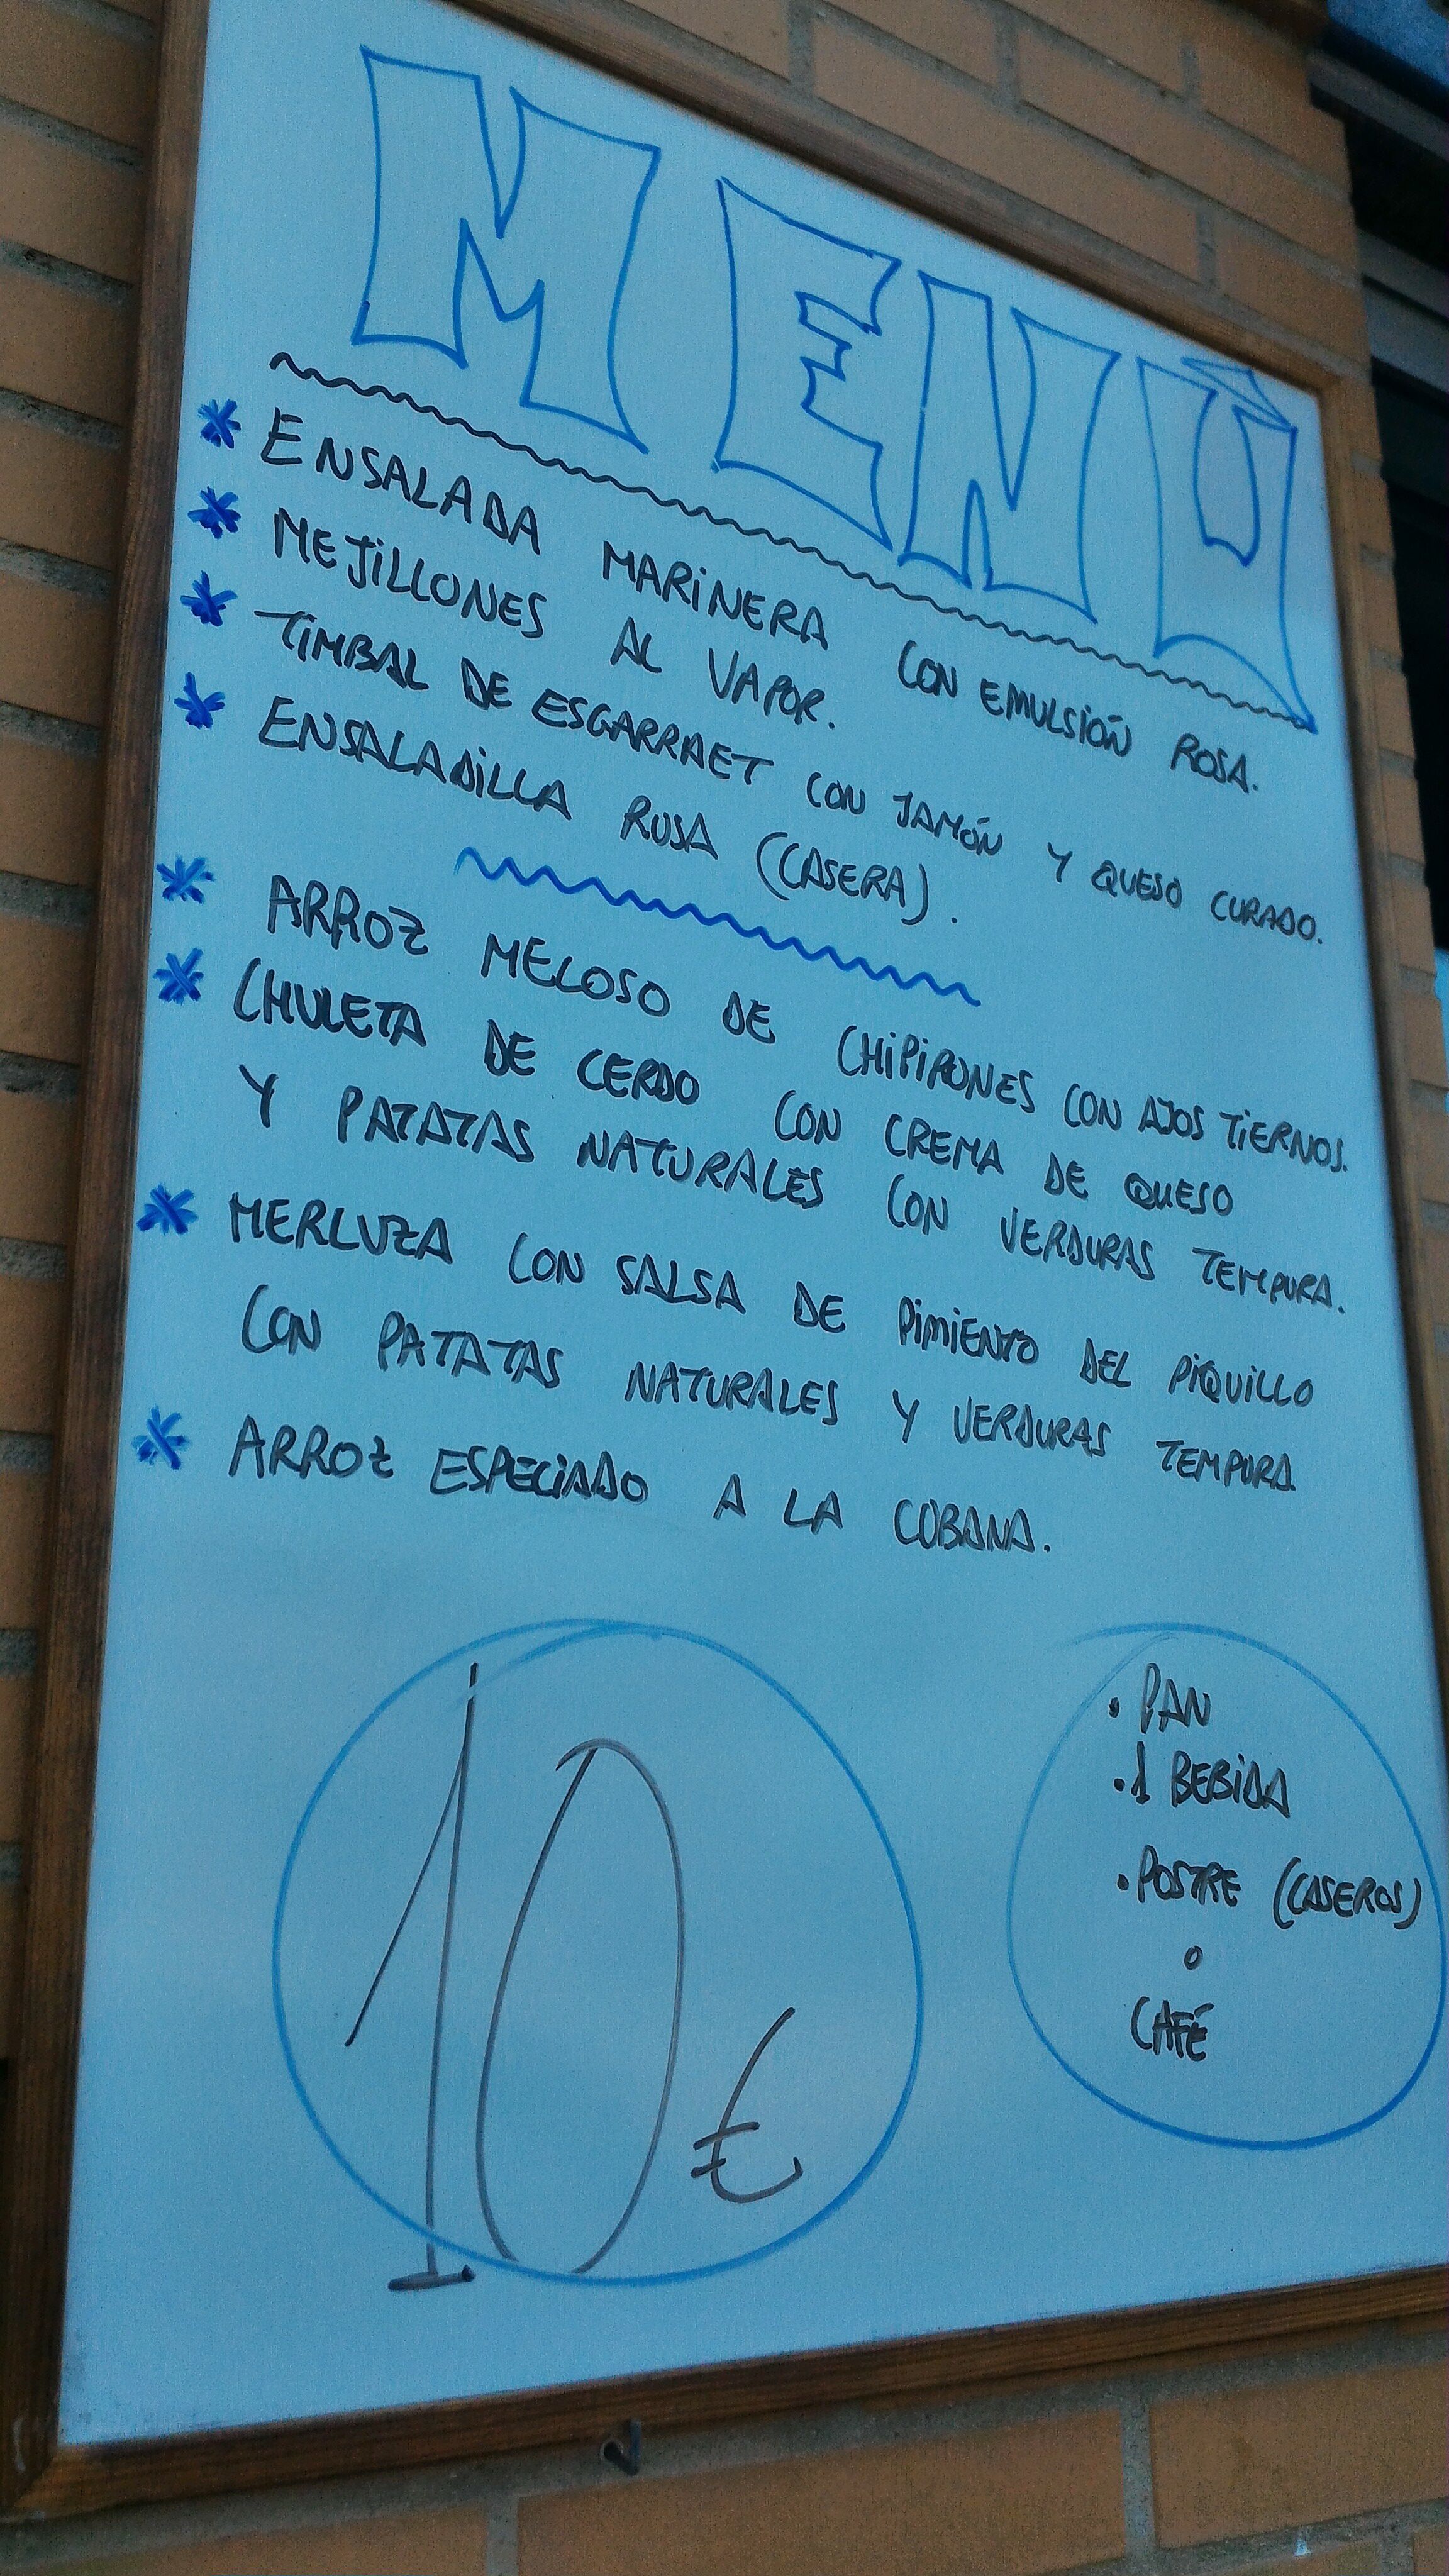 MENÚ
* ENSALADA MARINERA CON EMULSIÓN ROSA.
* MEJILLONES AL VAPOR.
* TIMBAL DE ESGARRAET CON JAMÓN Y QUESO CURADO.
* ENSALADILLA RUSA (CASERA).
* ARROZ MELOSO DE CHIPIRONES CON AJOS TIERNOS.
* CHULETA DE CERDO CON CREMA DE QUESO
Y PATATAS NATURALES CON VERDURAS TEMPURA.
* MERLUZA CON SALSA DE PIMIENTO DEL PIQUILLO
CON PATATAS NATURALES Y VERDURAS TEMPURA
* ARROZ ESPECIADO A LA COBANA.
10 €
• PAN
• 1 BEBIDA
• POSTRE (CASEROS)
o
CAFÉ